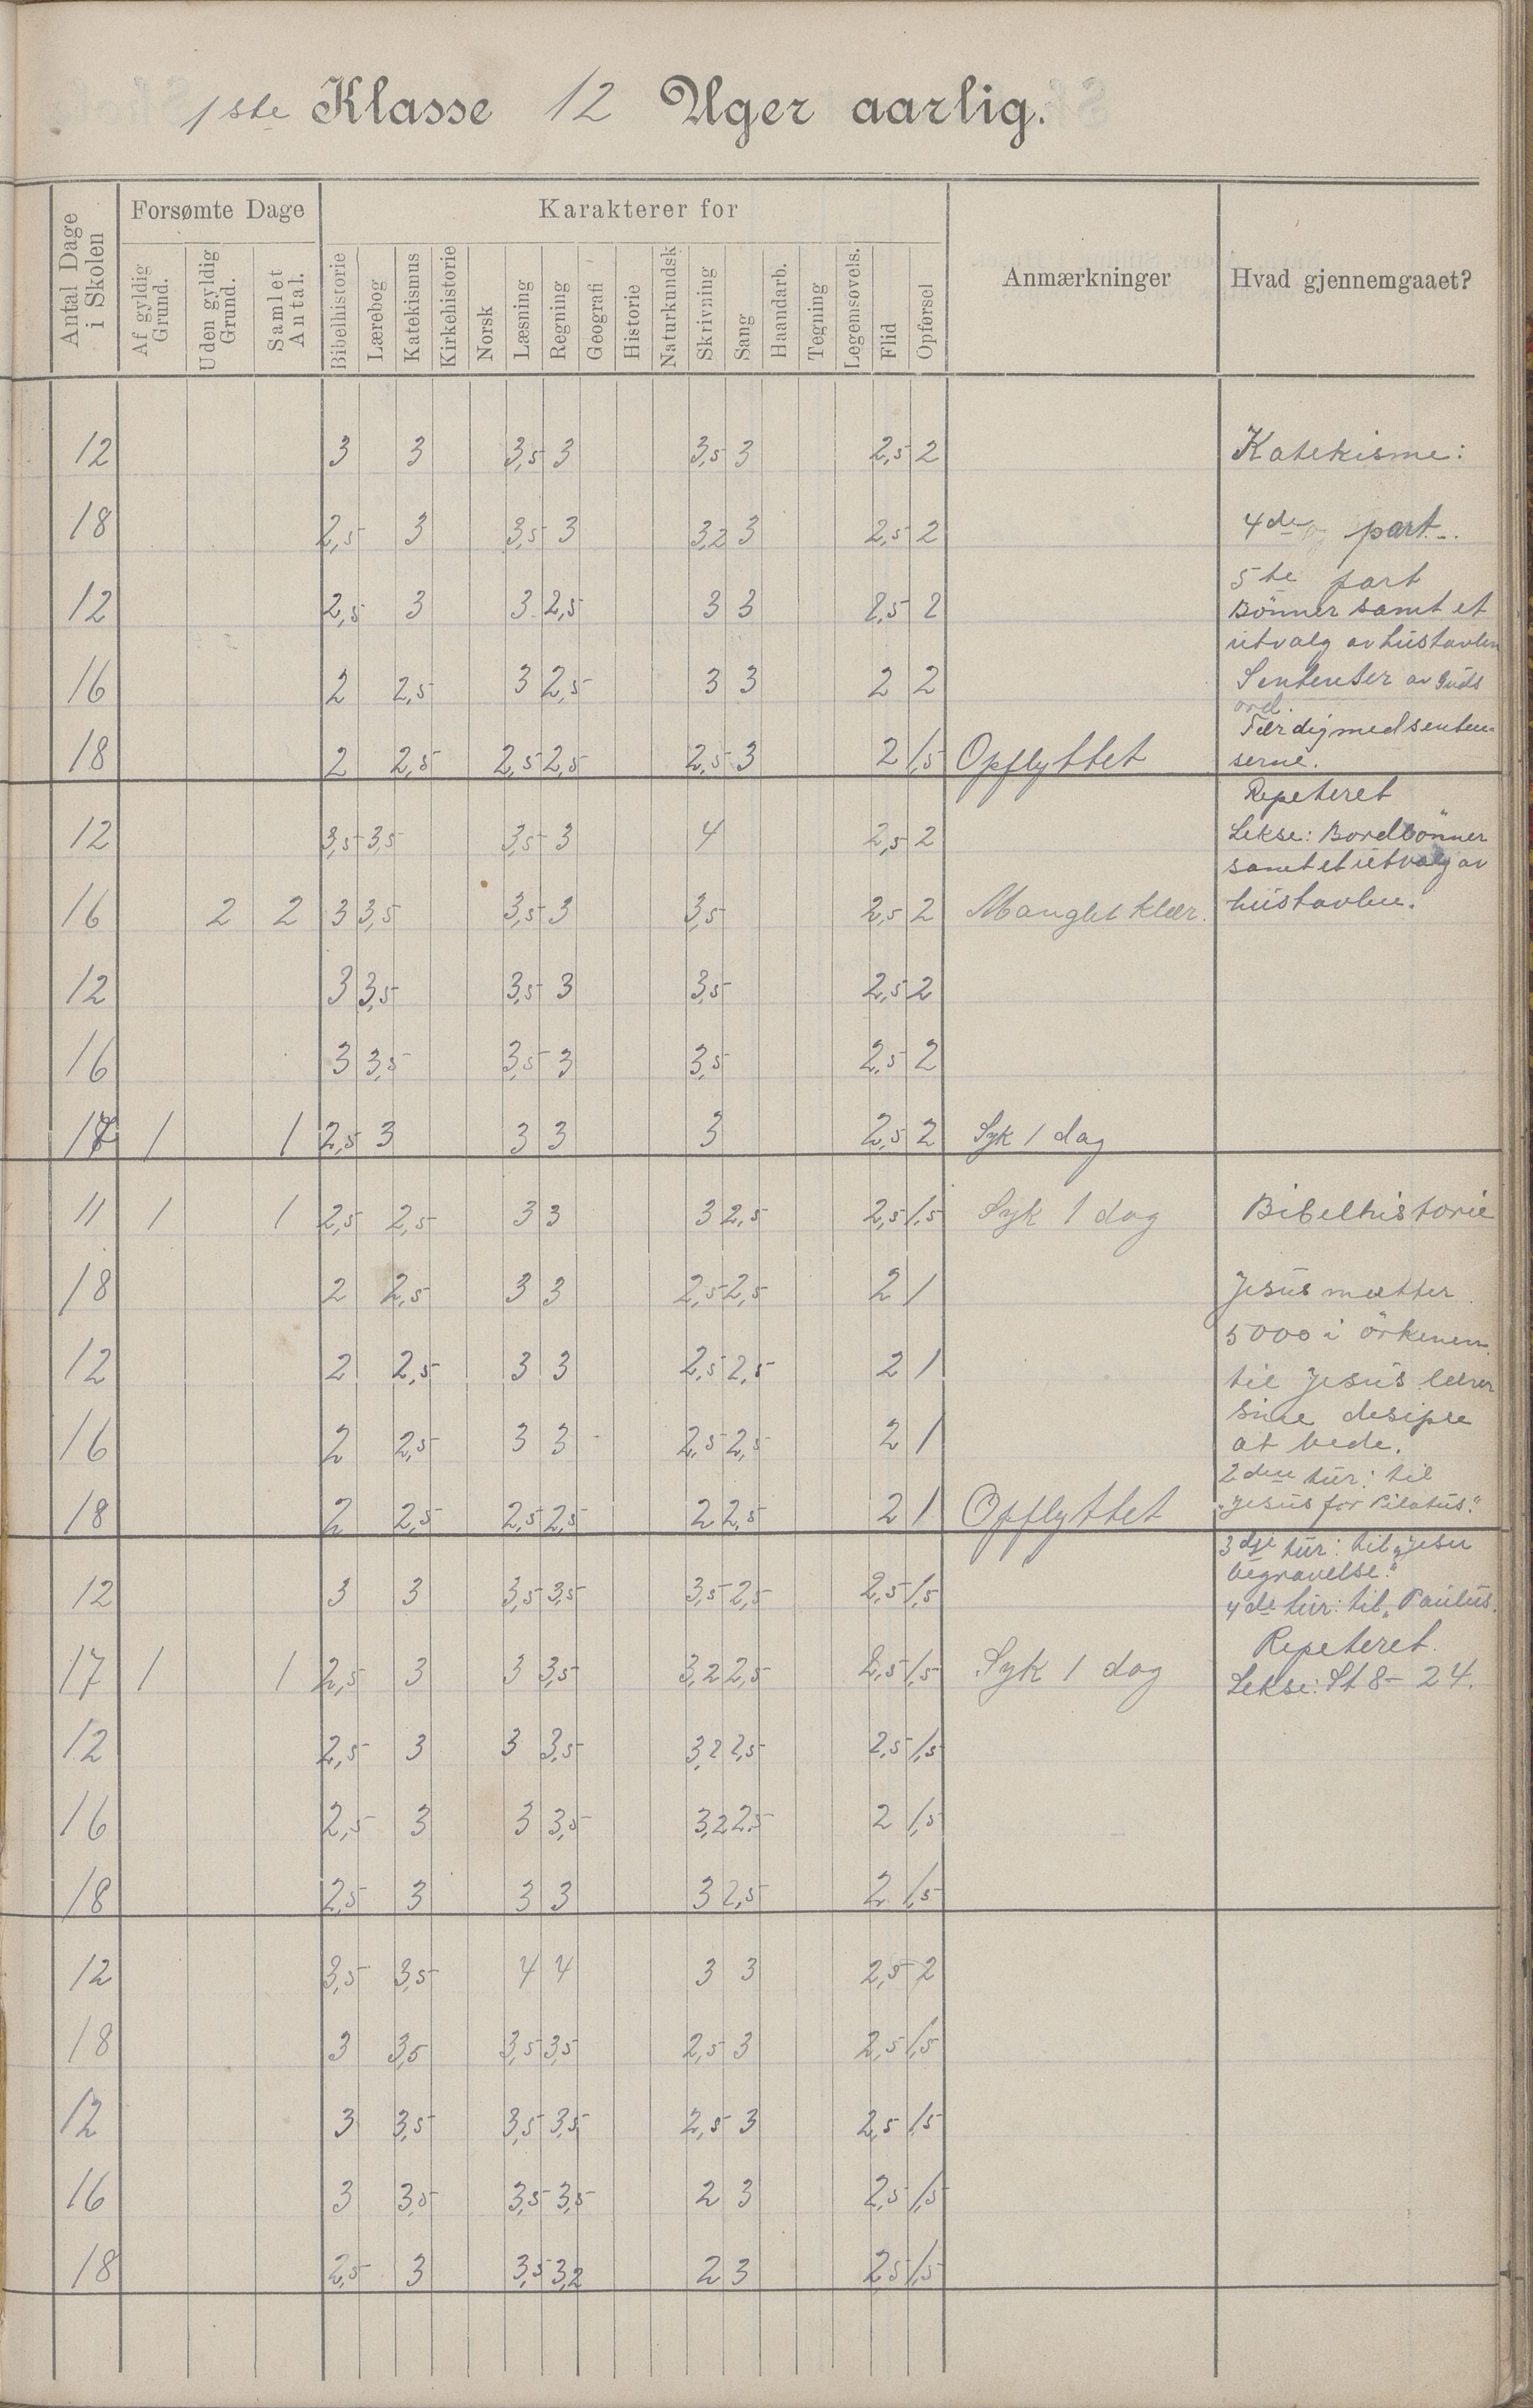 1ste Klasse 12 Uger aarlig.
Antal Dage i Skolen
Forsømte Dage
Af gyldig Grund.
Uden gyldig Grund.
Samlet Antal.
Karakterer for
Bibelhistorie
Lærebog
Katekismus
Kirkehistorie
Norsk
Læsning
Regning
Geografi
Historie
Naturkundsk
Skrivning
Sang
Haandarb.
Tegning
Legemsøvels.
Flid
Opførsel
Anmærkninger
Hvad gjennemgaaet?
12 3 3 3,5 3 3,5 3 2,5 2 Katekisme:
18 2,5 3 3,5 3 3,2 3 2,5 2 4de part.
5te part
12 2,5 3 3 2,5 3 3 2,5 2 Bönner samt et
utvalg av hustavlen
16 2 2,5 3 2,5 3 3 2 2 Sentenser av Guds
ord.
Færdig med senten-
18 2 2,5 2,5 2,5 2,5 3 2 1,5 Opflyttet serne.
Repeteret
12 3,5 3,5 3,5 3 4 2,5 2 Lekse: Bordbönner
samt et utvalg av
16 2 2 3 3,5 3,5 3 3,5 2,5 2 Manglet klær. hustavlen.
12 3 3,5 3,5 3 3,5 2,5 2
16 3 3,5 3,5 3 3,5 2,5 2
17 1 1 2,5 3 3 3 3 2,5 2 Syk 1 dag
11 1 1 2,5 2,5 3 3 3 2,5 2,5 1,5 Syk 1 dag Bibelhistorie
18 2 2,5 3 3 2,5 2,5 2 1 Jesus mætter
5000 i örkenen
12 2 2,5 3 3 2,5 2,5 2 1 til Jesus lærer
sine desiple
16 2 2,5 3 3 2,5 2,5 2 1 at bede.
2den tur: til
18 2 2,5 2,5 2,5 2 2,5 2 1 Opflyttet "Jesus for Pilatus."
3dje tur: til "Jesu
begravelse."
12 3 3 3,5 3,5 3,5 2,5 2,5 1,5 4de tur: til "Paulus.
Repeteret.
17 1 1 2,5 3 3 3,5 3,2 2,5 2,5 1,5 Syk 1 dag Lekse: St 8 - 24.
12 2,5 3 3 3,5 3,2 2,5 2,5 1,5
16 2,5 3 3 3,5 3,2 2,5 2 1,5
18 2,5 3 3 3 3 2,5 2 1,5
12 3,5 3,5 4 4 3 3 2,5 2
18 3 3,5 3,5 3,5 2,5 3 2,5 1,5
12 3 3,5 3,5 3,5 2,5 3 2,5 1,5
16 3 3,5 3,5 3,5 2 3 2,5 1,5
18 2,5 3 3,5 3,2 2 3 2,5 1,5